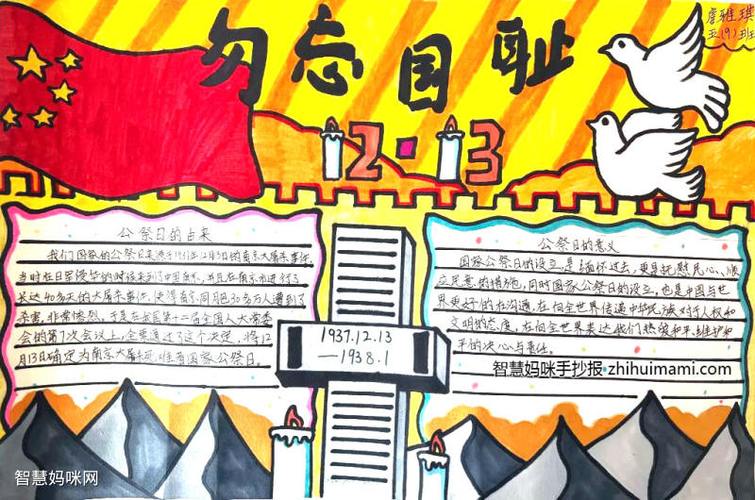 勿忘国耻
五(9)班
12·13
公祭日的由来
12月13日的南京大屠杀事件。
长达40多天的大屠杀事件,使得南京同胞30多万人遭到了
杀害,非常惨烈,于是在我国第十二届全国人大常委
会的第7次会议上,全票通过了这个决定,将12
月13日确定为南京大屠杀
国家公祭日。
1937.12.13
—1938.1
公祭日的意义
国家公祭日的设立,是缅怀过去,更是抚慰民心、顺
应民意的措施,同时国家公祭日的设立,也是中国与世
界更好的
沟通,在向全世界传递中华民族对于人权和
文明的态度,在向全世界表达我们热爱和平,维护和
平的决心与责任。
智慧妈咪手抄报·zhihuimami.com
智慧妈咪网